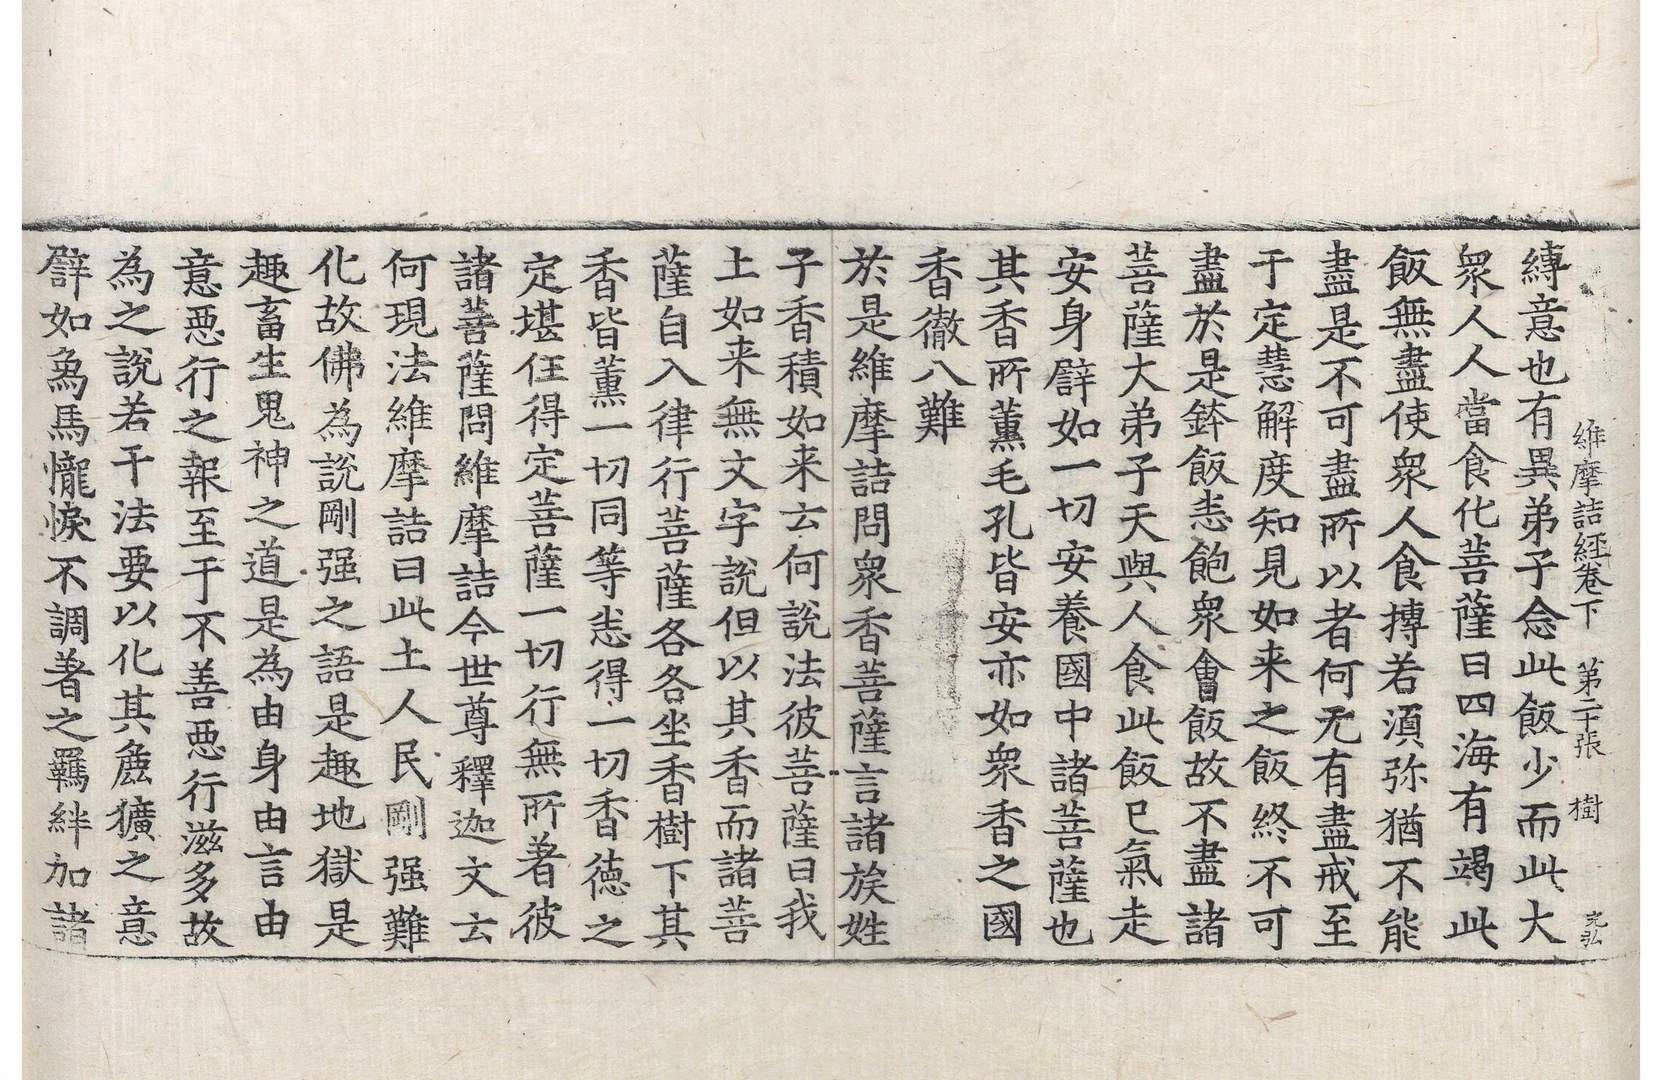 維摩詰經卷下　第二十張　樹
縛意也有異弟子念此飯少而此大
衆人人當食化菩薩曰四海有竭此
飯無盡使衆人食摶若湏弥猶不能
盡是不可盡所以者何无有盡戒至
于定慧解度知見如来之飯終不可
盡於是鉢飯悉飽衆會飯故不盡諸
菩薩大弟子天與人食此飯已氣走
安身譬如一切安養國中諸菩薩也
其香所薰毛孔皆安亦如衆香之國
香徹八難
於是維摩詰問衆香菩薩言諸族姓
子香積如来云何說法彼菩薩曰我
上如来無文字說但以其香而諸菩
薩自入律行菩薩各各坐香樹下其
香皆薰一切同等悉得一切香德之
定堪任得定菩薩一切行無所著彼
諸菩薩問維摩詰今世尊釋迦文云
何現法維摩詰曰此土人民剛强難
化故佛為說剛强之語是趣地獄是
趣畜生鬼神之道是為由身由言由
意惡行之報至于不善惡行滋多故
為之說若干法要以化其麁獷之意
譬如象馬㦬悷不調著之羈絆加諸